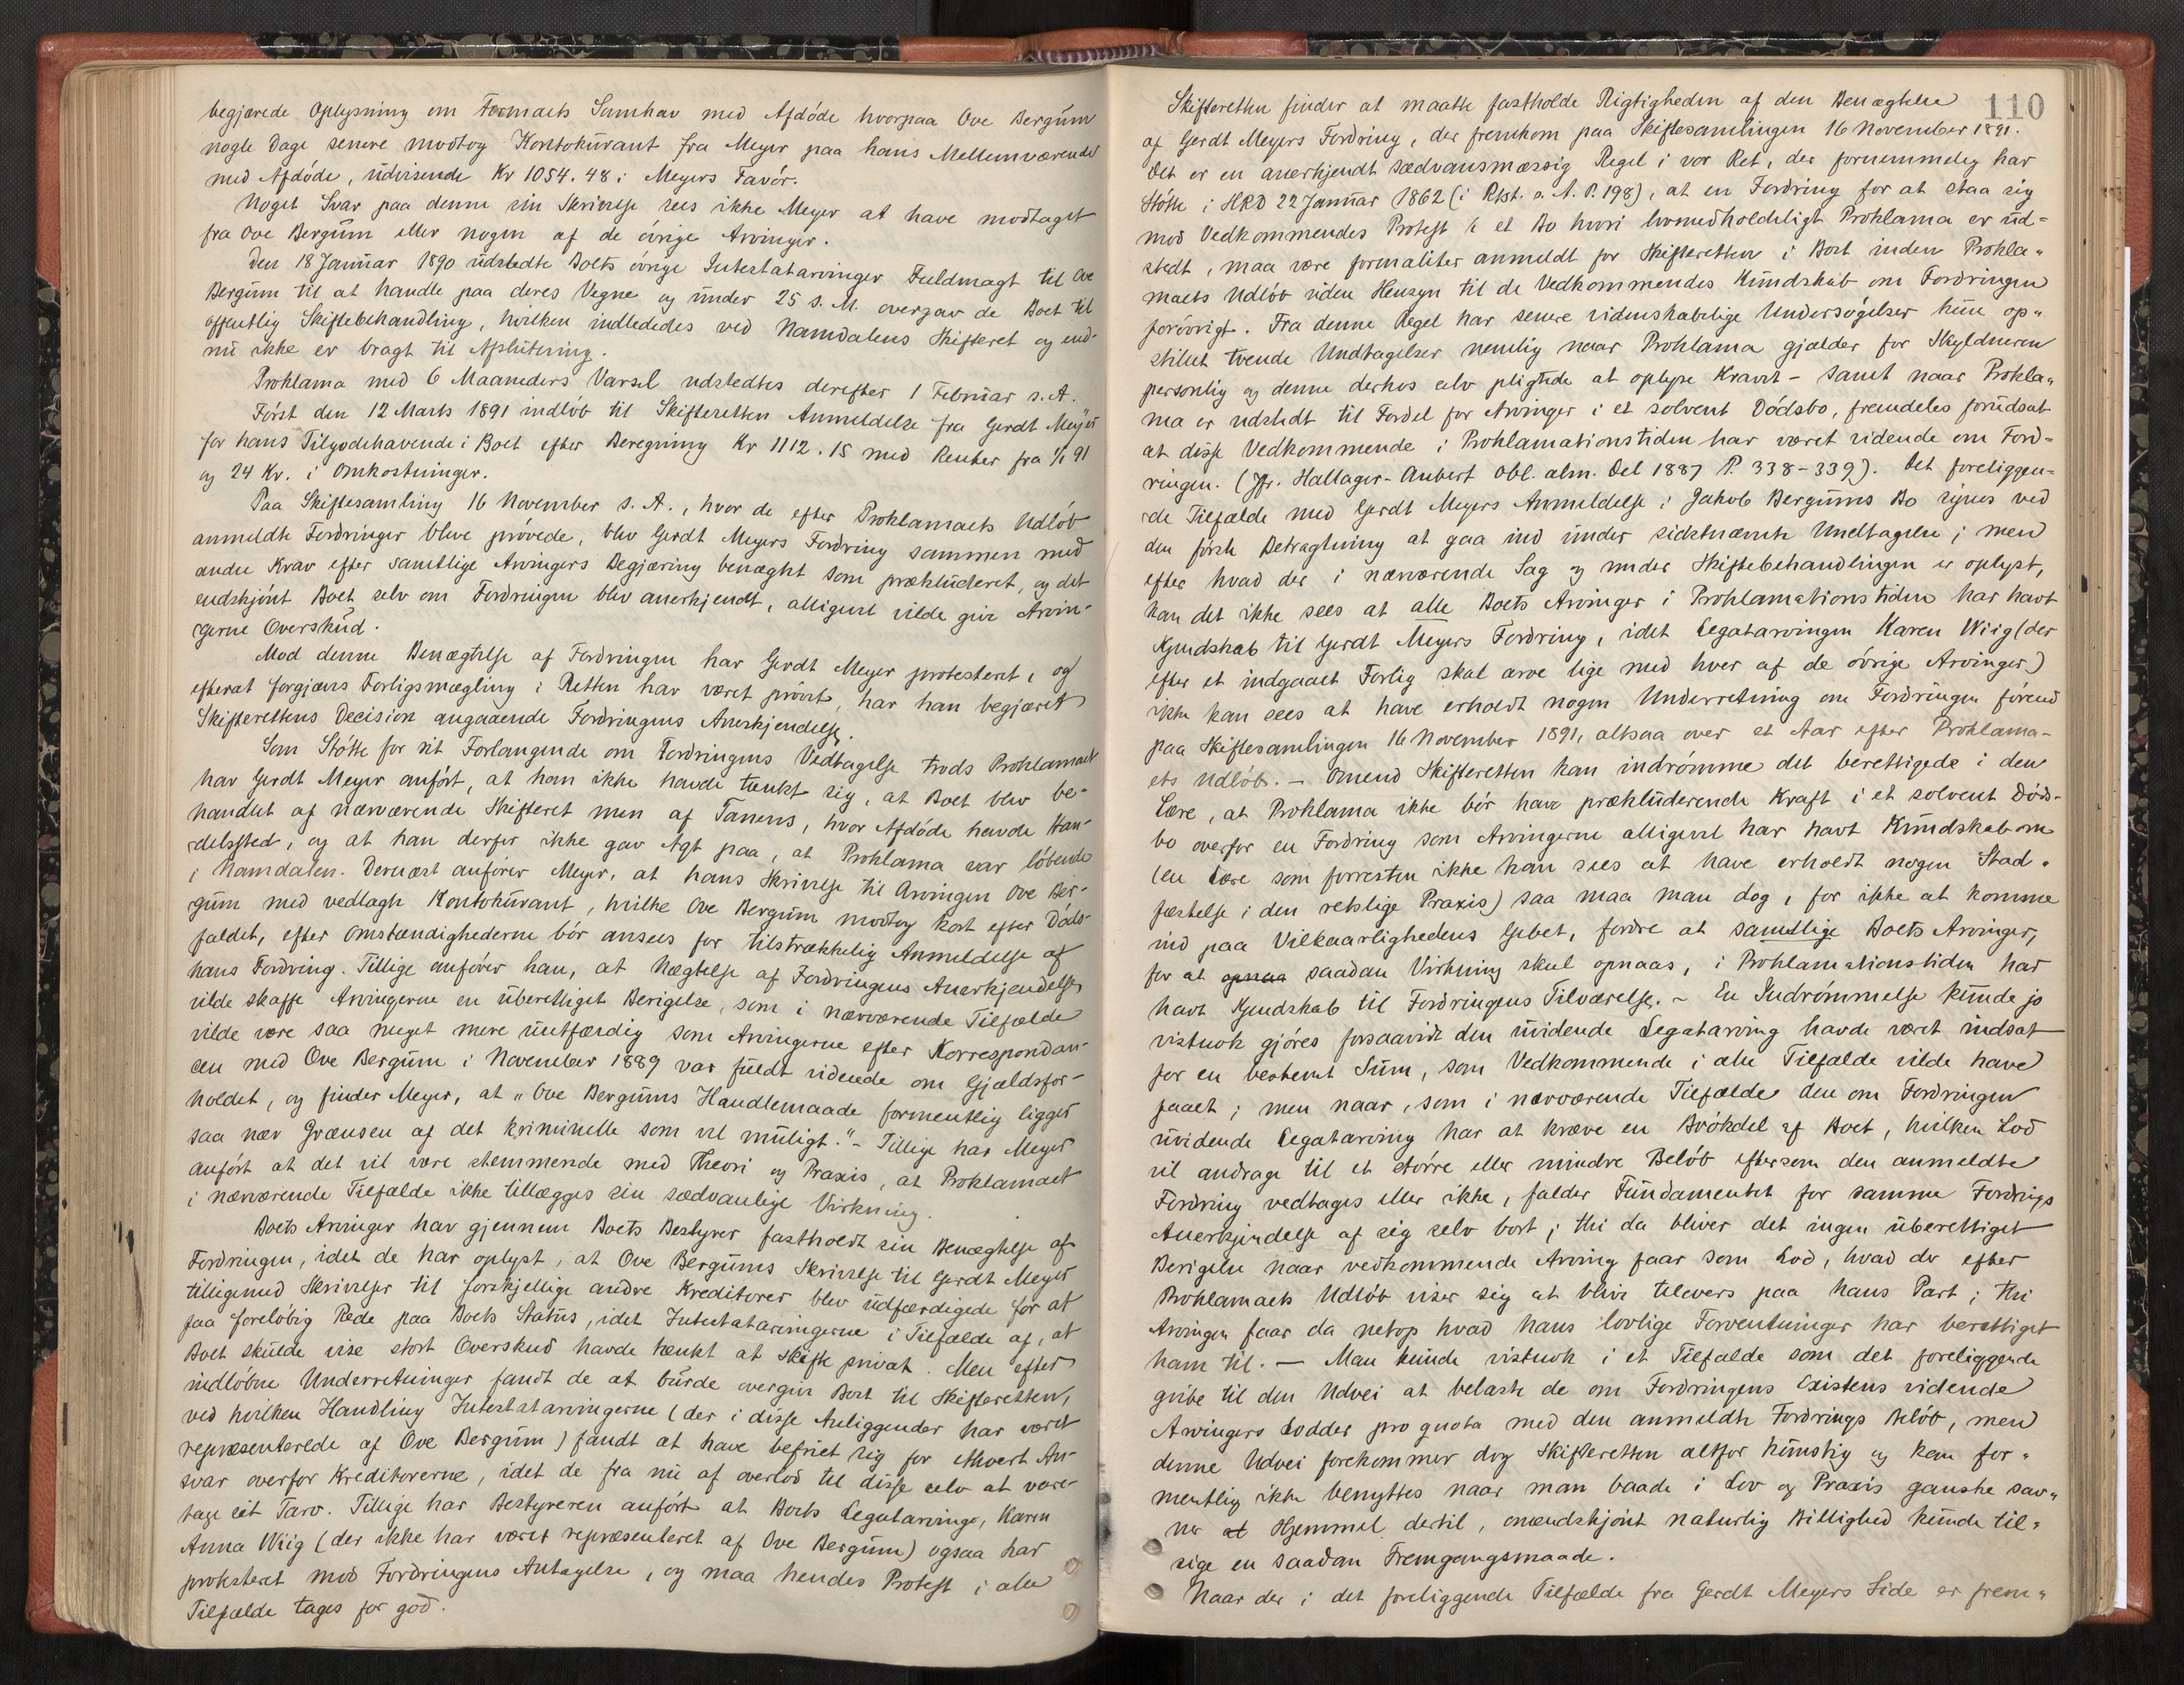 begjærede Oplysning om Formaets Samhav med Afdöde hvorpaa Ove Bergüm
nogle Dage senere modtog Kontokürant fra Meyer paa hans Mellemværende
med Afdöde, üdvisende Kr 1054.48 i Meyers Favör.
Noget Svar paa denne sin Skrivelse sees ikke Meyer at have modtaget
fra Ove Bergüm eller nogen af de övrige Arvinger.
Den 18 Januar 1890 üdstedte Boets övrige Intestatarvinger Fuldmagt til Ove
Bergüm til at handle paa deres Vegne og ünder 25 s. M. overgav de Boet til
offentlig Skiftebehandling, hvilken indlededes ved Namdalens Skifteret og end-
nü ikke er bragt til Afslütning.
Proklama med 6 Maaneders Varsel udstedtes derefter 1 Februar s. A.
Först den 12 Marts 1891 indlöb til Skifteretten Anmeldelse fra Gerdt Meyer
for hans Tilgodehavende i Boet efter Beregning Kr 1112.15 med Renter fra 1/1 91
og 24 Kr. i Omkostninger.
Paa Skiftesamling 16 November s. A., hvor de efter Proklamaets Udlöb
anmeldte Fordringer bleve prövede, blev Gerdt Meyers Fordring sammen med
andre Krav efter samtlige Arvingers Begjæring benægtet som præklüderet, og det
endskjönt Boet selv om Fordringen blev anerkjendt, alligevel vilde give Arvin-
gerne Overskud.
Mod denne Benægtelse af Fordringen har Gerdt Meyer protesteret, og
efterat forgjæves Forligsmægling i Retten har været prövet, har han begjæret
Skifterettens Decision angaaende Fordringens Anerkjendelse.
Som Stötte for sit Forlangende om Fordringens Vedtagelse trods Proklamaet
har Gerdt Meyer anfört, at han ikke havde tænkt sig, at Boet blev be-
handlet af nærværende Skifteret men af Tanens, hvor Afdöde havde Han-
delssted, og at han derfor ikke gav Agt paa, at Proklama var löbende
i Namdalen. Dernæst anförer Meyer, at hans Skrivelse til Arvingen Ove Ber-
güm med vedlagte Kontokürant, hvilke Ove Bergüm modtog kort efter Döds-
faldet, efter Omstændighederne bör ansees for tilstrækkelig Anmeldelse af
hans Fordring. Tillige anförer han, at Nægtelse af Fordringens Anerkjendelse
vilde skaffe Arvingerne en überettiget Berigelse, som i nærværende Tilfælde
vilde være saa meget mere üretfærdig som Arvingerne efter Korrespondan-
cen med Ove Bergüm i November 1889 var füldt vidende om Gjældsfor-
holdet, og finder Meyer, at „Ove Bergüms Handlemaade formentlig ligger
saa nær Grænsen af det kriminelle som vel müligt." - Tillige har Meyer
anfört at det vil være stemmende med Theori og Praxis, at Proklamaet
i nærværende Tilfælde ikke tillægges sin sædvanlige Virkning.
Boets Arvinger har gjennem Boets Bestyrer fastholdt sin Benægtelse af
Fordringen, idet de har oplyst, at Ove Bergüms Skrivelse til Gerdt Meyer
tilligemed Skrivelser til forskjellige andre Kreditorer blev udfærdigede for at
faa foreløbig Rede paa Boets Status, idet Intestatarvingerne i Tilfælde af, at
Boet skülde vise stort Overskud havde tænkt at skifte privat. Men efter
indlöbne Underretninger fandt de at bürde overgive Boet til Skifteretten,
ved hvilken Handling Intestatarvingerne (der i disse Anliggender har været
repræsenterede af Ove Bergüm) fandt at have befriet sig for ethvert An-
svar overfor Kreditorerne, idet de fra nü af overlod til disse selv at vare-
tage sit Tarv. Tillige har Bestyreren anfört at Boets Legatarvinge, Karen
Anna Wiig (der ikke har været repræsenteret af Ove Bergüm) ogsaa har
protesteret mod Fordringens Antagelse, og maa hendes Protest i alle
Tilfælde tages for god.
110
Skifteretten finder at maatte fastholde Rigtigheden af den Benægtelse
af Gerdt Meyers Fordring, der fremkom paa Skiftesamlingen 16 November 1891.
Det er en anerkjendt sædvansmæssig Regel i vor Ret, der fornemmelig har
Stötte i HRD 22 Januar 1862 (i Rtst. s. A. P. 198), at en Fordring for at staa sig
mod Vedkommendes Protest i et Bo hvori lovmedholdeligt Proklama er üd-
stedt, maa være formaliter anmeldt for Skifteretten i Boet inden Prokla-
maets Udlöb uden Hensyn til de Vedkommendes Kündskab om Fordringen
forövrigt. Fra denne Regel har senere videnskabelige Undersögelser kün op-
stillet tvende Undtagelser nemlig naar Proklama gjælder for Skyldneren
personlig og denne derhos selv pligtede at oplyse Kravet - samt naar Prokla-
ma er udstedt til Fordel for Arvinger i et solvent Dödsbo, fremdeles forudsat
at disse Vedkommende i Proklamationstiden har været vidende om Ford-
ringen. (Jfr. Hallager-Aubert Obl. alm. Del 1887 P. 338-339). Det foreliggen-
de Tilfælde med Gerdt Meyers Anmeldelse i Jakob Bergüms Bo synes ved
den förste Betragtning at gaa ind ünder sidstnævnte Undtagelse; men
efter hvad der i nærværende Sag og under Skiftebehandlingen er oplyst,
kan det ikke sees at alle Boets Arvinger i Proklamationstiden har havt
Kjendskab til Gerdt Meyers Fordring, idet Legatarvingen Karen Wiig (der
efter et indgaaet Forlig skal arve lige med hver af de övrige Arvinger)
ikke kan sees at have erholdt nogen Underretning om Fordringen förend
paa Skiftesamlingen 16 November 1891, altsaa over et Aar efter Proklama-
ets Udlöb. - Omend Skifteretten kan indrömme det berettigede i den
Lære, at Proklama ikke bör have præklüderende Kraft i et solvent Döds-
bo overfor en Fordring som Arvingerne alligevel har havt Kündskab om
(en Lære som forresten ikke kan sees at have erholdt nogen Stad-
fæstelse i den retslige Praxis) saa maa man dog, for ikke at komme
ind paa Vilkaarlighedens Gebet, fordre at samtlige Boets Arvinger,
for at opnaa saadan Virkning skal opnaas, i Proklamationstiden har
havt Kjendskab til Fordringens Tilværelse. - En Indrömmelse kunde jo
vistnok gjöres forsaavidt den üvidende Legatarving havde været indsat
for en bestemt Süm, som Vedkommende i alle Tilfælde vilde have
faaet; men naar, som i nærværende Tilfælde den om Fordringen
üvidende Legatarving har at kræve en Brökdel af Boet, hvilken Lod
vil andrage til et större eller mindre Belöb eftersom den anmeldte
Fordring vedtages eller ikke, falder Fundamentet for samme Fordrings
Anerkjendelse af sig selv bort; thi da bliver det ingen überettiget
Berigelse naar vedkommende Arving faar som Lod, hvad der efter
Proklamaets Udlöb viser sig at blive tilovers paa hans Part; thi
Arvingen faar da netop hvad hans lovlige Forventninger har berettiget
ham til. - Man kunde vistnok i et Tilfælde som det foreliggende
gribe til den Udvei at belaste de om Fordringens Existens vidende
Arvingers Lodder pro quota med den anmeldte Fordrings Belöb, men
denne Udvei forekommer dog Skifteretten altfor künstig og kan for-
mentlig ikke benyttes naar man baade i Lov og Praxis ganske sav-
ner at Hjemmel dertil, omendskjönt naturlig Billighed kunde til-
sige en saadan Fremgangsmaade.
Naar der i det foreliggende Tilfælde fra Gerdt Meyers Side er frem-